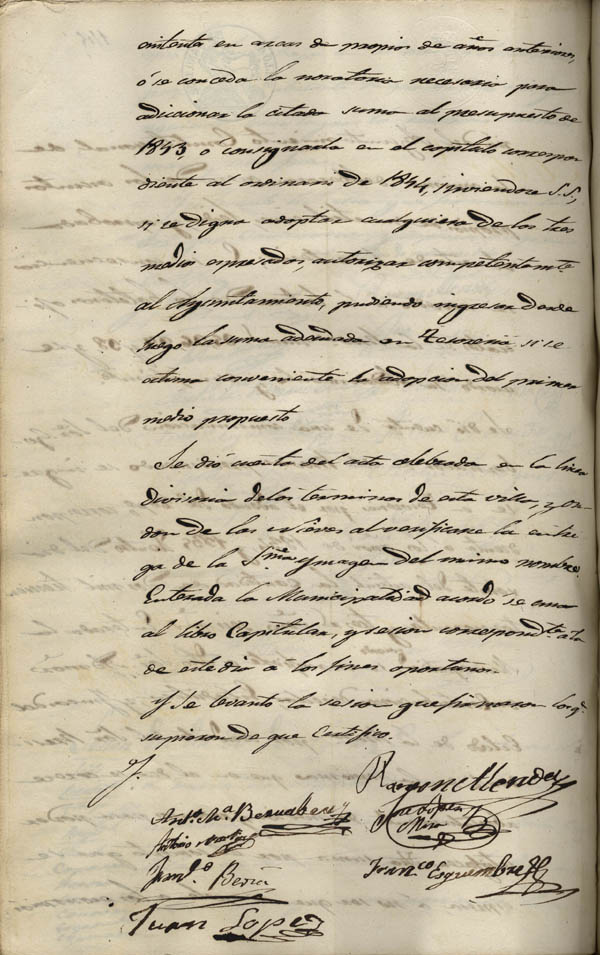 ecsistente en arcas de propios de años anteriores,
ó se conceda la moratoria necesaria para
adiccionar la citada suma al presupuesto de
1843, ó consignarla en el capitulo correspon
diente al ordinario de 1844, sirviendose S.S.,
si se digna adoptar cualquiera de los tres
medios espresados, autorizar competentemte
al Ayuntamiento, pudiendo ingresar desde
luego la suma adeudada en Tesoreria si se
estima conveniente la adopcion del primer
medio propuesto
Se dió cuenta del acta celebrada en la linea
divisoria de los terminos de esta villa, y
de las Nieves al verificarse la entre
ga de la Sma Ymagen del mismo nombre.
Enterada la Municipalidad acordó se una
al libro Capitular, y sesion correspondte a la
de este dia a los fines oportunos.
Y Se levantó la sesion que firmaron los q.
supieron de que Certifico.
Ramon Mendez
Anto Ma Bernabeu
Jose Lopez
Miro
Antonio
Franco Esquembre
Beria
Juan Lopez